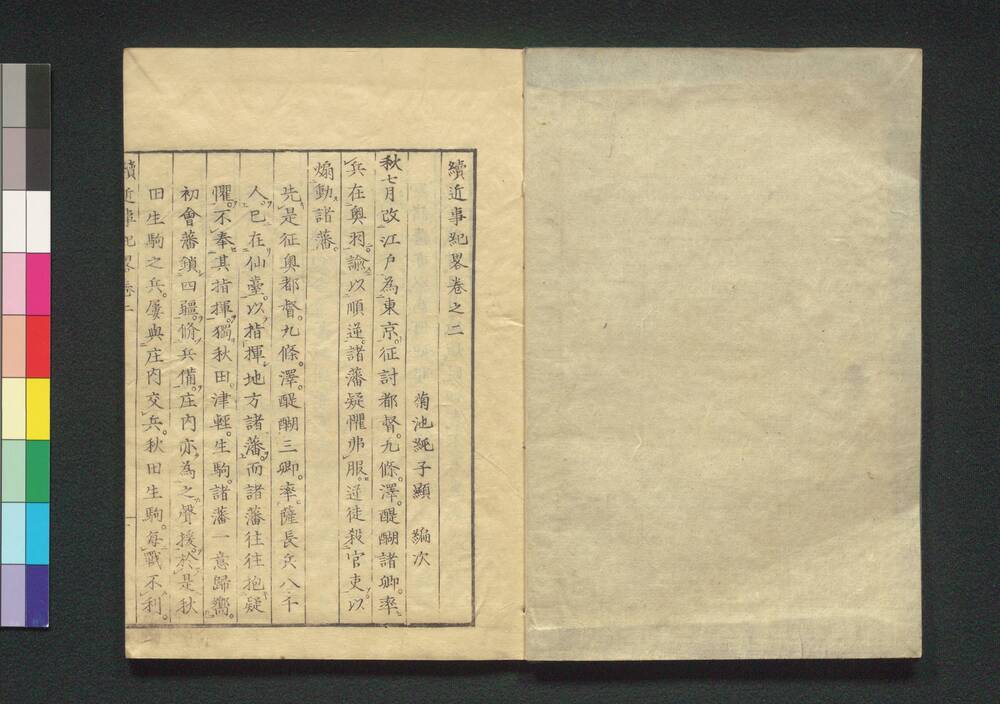 續近事紀畧卷之二
菊池純子顯　編次
秋七月改江戸為東京。征討都督。九條。澤。醍醐諸卿。率
兵在奥羽。諭以順逆。諸藩疑懼弗服。逆徒殺官吏。以
煽動諸藩。
先是征奥都督。九條。澤。醍醐三卿。率薩長兵八千
人。已在仙臺。以指揮地方諸藩。而諸藩往往抱疑
懼。不奉其指揮。獨秋田。津軽。生駒。諸藩一意歸嚮。
初會藩鎖四疆。脩兵備。庄内亦為之聲援。於是秋
田生駒之兵。屡與庄内交兵。秋田生駒。每戰不利。
續近事紀畧卷二